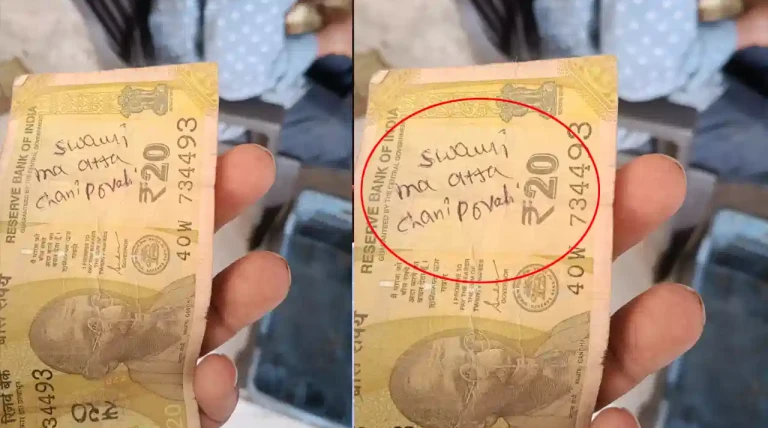 swami
ma atta
chani Povali
RESERVE BANK OF INDIA
GUARANTEED BY THE CENTRAL GOVERNMENT
₹20
40W 734493
I PROMISE TO
PAY THE BEARER
THE SUM OF
TWENTY RUPEES
GOVERNOR
रिज़र्व बैंक
734493
20
swami
ma atta
chani Povali
RESERVE BANK OF INDIA
GUARANTEED BY THE CENTRAL GOVERNMENT
₹20
40W 734493
I PROMISE TO
PAY THE BEARER
THE SUM OF
TWENTY RUPEES
GOVERNOR